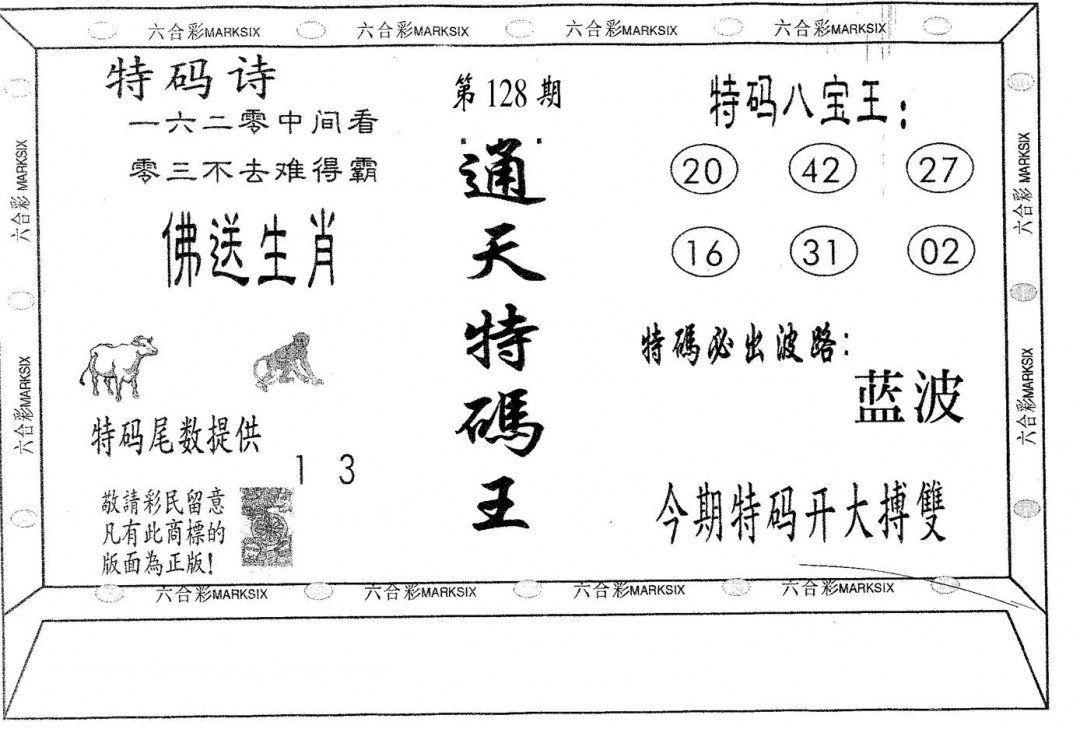 六合彩MARKSIX 六合彩MARKSIX 六合彩MARKSIX 六合彩MARKSIX
特码诗
一六二零中间看
零三不去难得霸
佛送生肖
特码尾数提供
1 3
敬請彩民留意
凡有此商標的
版面為正版!
第128期
通天特碼王
特码八宝王:
20 42 27
16 31 02
特碼必出波路:
蓝波
今期特码开大搏雙
六合彩 MARKSIX
六合彩MARKSIX
六合彩 MARKSIX
六合彩MARKSIX
六合彩MARKSIX 六合彩MARKSIX 六合彩MARKSIX 六合彩MARKSIX